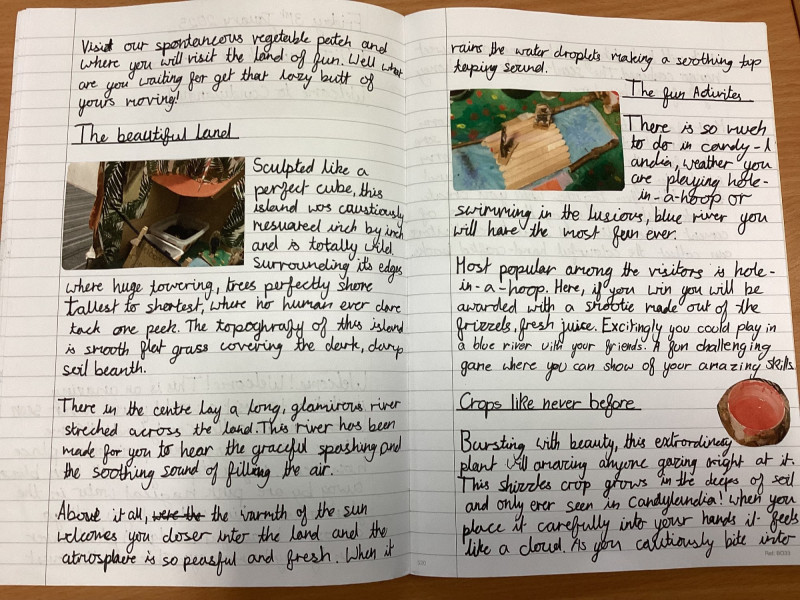 Visit our spontaneous vegetable patch and
where you will visit the land of fun. Well what
are you waiting for get that lazy butt of
yours moving!
The beautiful Land
Sculpted like a
perfect cube, this
island was caustiously
mesuared inch by inch
and is totally wild.
Surrounding it's edges
where huge towering, trees perfectly shore
tallest to shortest, where no human ever dare
tack one peek. The topoghrafy of this island
is smooth flat grass covering the dark, damp
soil beanth.
There in the centre lay a long, glamirous river
streched across the land. This river has been
made for you to hear the graceful spashing and
the soothing sound of filling the air.
About it all, were the the warmth of the sun
welcomes you closer into the land and the
atmosplare is so peasful and fresh. When it
rains the water droplets making a soothing tap
taping sound.
The fun Adivites
There is so much
to do in candy-l
andia, weather you
are playing hole-
in-a-hoop or
swimming in the lusious, blue river you
will have the most fun ever.
Most popular among the visitors is hole-
in-a-hoop. Here, if you win you will be
awarded with a smotie made out of the
frizzels, fresh juice. Excitingly you could play in
a blue river with your friends. A fun challenging
game where you can show of your amazing skills.
Crops like never before
Bursting with beauty, this extrordinary
plant will amazing anyone gazing right at it.
This shizzles crop grows in the deeps of soil
and only ever seen in Candylandia! when you
place it carefully into your hands it feels
like a cloud. As you cautiously bite into